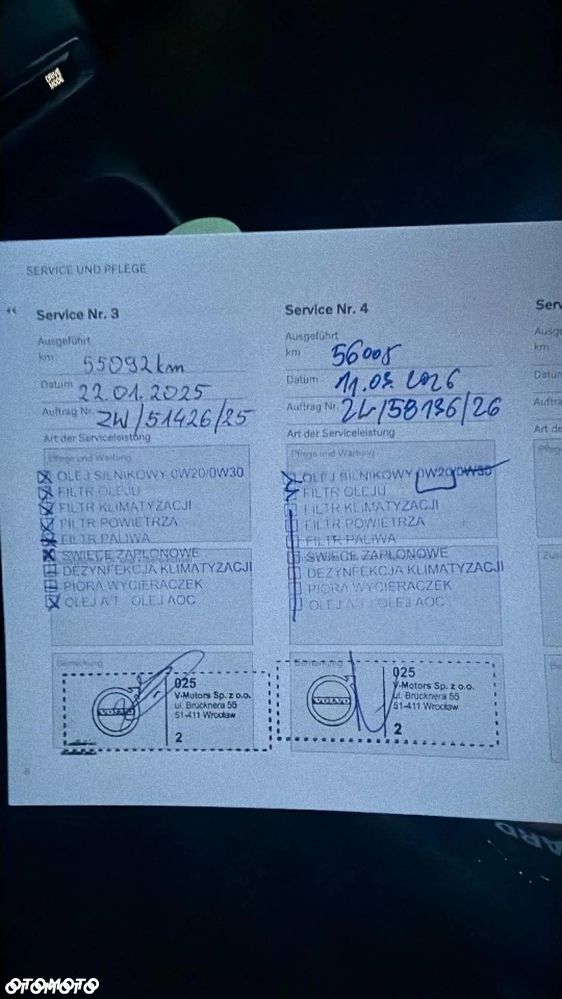 DRIVE
MODE
SERVICE UND PFLEGE
Service Nr. 3
Ausgeführt
km 55092 km
Datum 22.01.2025
Auftrag Nr. ZW/51426/25
Art der Serviceleistung
Pflege und Wartung
OLEJ SILNIKOWY 0W20/0W30
FILTR OLEJU
FILTR KLIMATYZACJI
FILTR POWIETRZA
FILTR PALIWA
ŚWIECE ZAPŁONOWE
DEZYNFEKCJA KLIMATYZACJI
PIÓRA WYCIERACZEK
OLEJ AT OLEJ AOC
Bemerkung
025
V-Motors Sp. z o.o.
ul. Brücknera 55
51-411 Wrocław
VOLVO
2
8
Service Nr. 4
Ausgeführt
km 56005
Datum 11.03.2026
Auftrag Nr. ZL/58136/26
Art der Serviceleistung
Pflege und Wartung
OLEJ SILNIKOWY 0W20/0W30
FILTR OLEJU
FILTR KLIMATYZACJI
FILTR POWIETRZA
FILTR PALIWA
ŚWIECE ZAPŁONOWE
DEZYNFEKCJA KLIMATYZACJI
PIÓRA WYCIERACZEK
OLEJ AT OLEJ AOC
Bemerkung
025
V-Motors Sp. z o.o.
ul. Brücknera 55
51-411 Wrocław
VOLVO
2
Ser
Ausg
km
Datum
Auftra
Art de
OTOMOTO